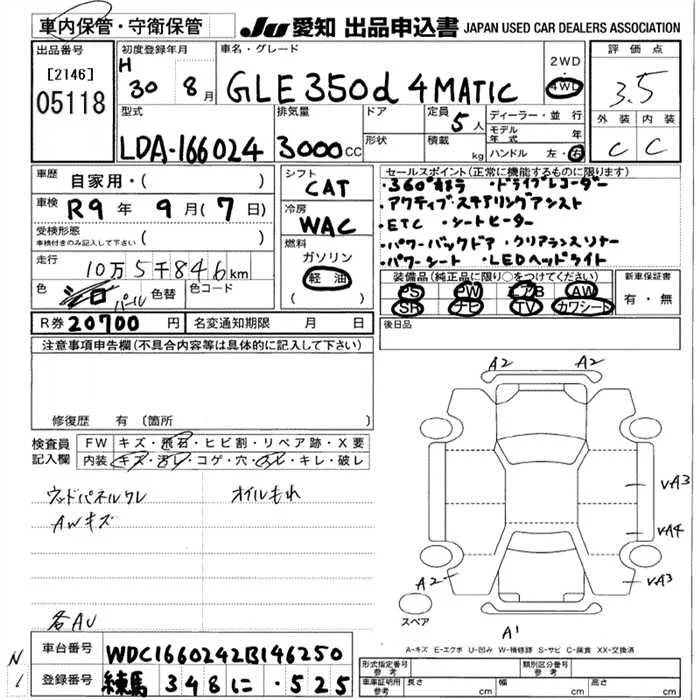 車内保管・守衛保管 JU 愛知 出品申込書 JAPAN USED CAR DEALERS ASSOCIATION
出品番号 初度登録年月 車名・グレード 2WD 評価点
[2146] H 30 8月 GLE 350d 4MATIC 4WD 3.5
05118
型式 排気量 ドア 定員 5人 ディーラー・並行 外装 内装
LDA-166024 3000cc 形状 積載 kg モデル年式 年 C C
ハンドル 左・右
車歴 自家用・( ) シフト CAT セールスポイント(正常に機能するものに限ります)
車検 R9年 9月(7日) 冷房 WAC ・360°カメラ ・ドライブレコーダー
受検形態 ・アクティブステアリングアシスト
車検付きのみ記入して下さい ( ) 燃料 ・ETC ・シートヒーター
走行 10万5千846km ガソリン ・パワーバックドア ・クリアランスソナー
軽油 ・パワーシート ・LEDヘッドライト
色 シロ パール 色替 色コード ( ) 装備品(純正品に限り○をつけてください) 新車保証書
PS PW エアB AW 有・無
SR ナビ TV カワシート
R券 20700円 名変通知期限 月 日 後日品
注意事項申告欄(不具合内容等は具体的に記入して下さい)
修復歴 有 (箇所
検査員記入欄 FW キズ・飛石・ヒビ割・リペア跡・X要
内装 キズ・汚レ・コゲ・穴・スレ・キレ・破レ
ウッドパネルワレ オイルもれ
AWキズ
各AU
A2 A2
vA3
vA4
A2 vA3
スペア
A1
A-キズ E-エクボ U-凹み W-補修跡 S-サビ C-腐食 XX-交換済
車台番号 WDC1660242B146250 形式指定番号 類別区分番号
登録番号 練馬 348 に ・525 車庫証明用参考 長さ cm 幅 cm 高さ cm